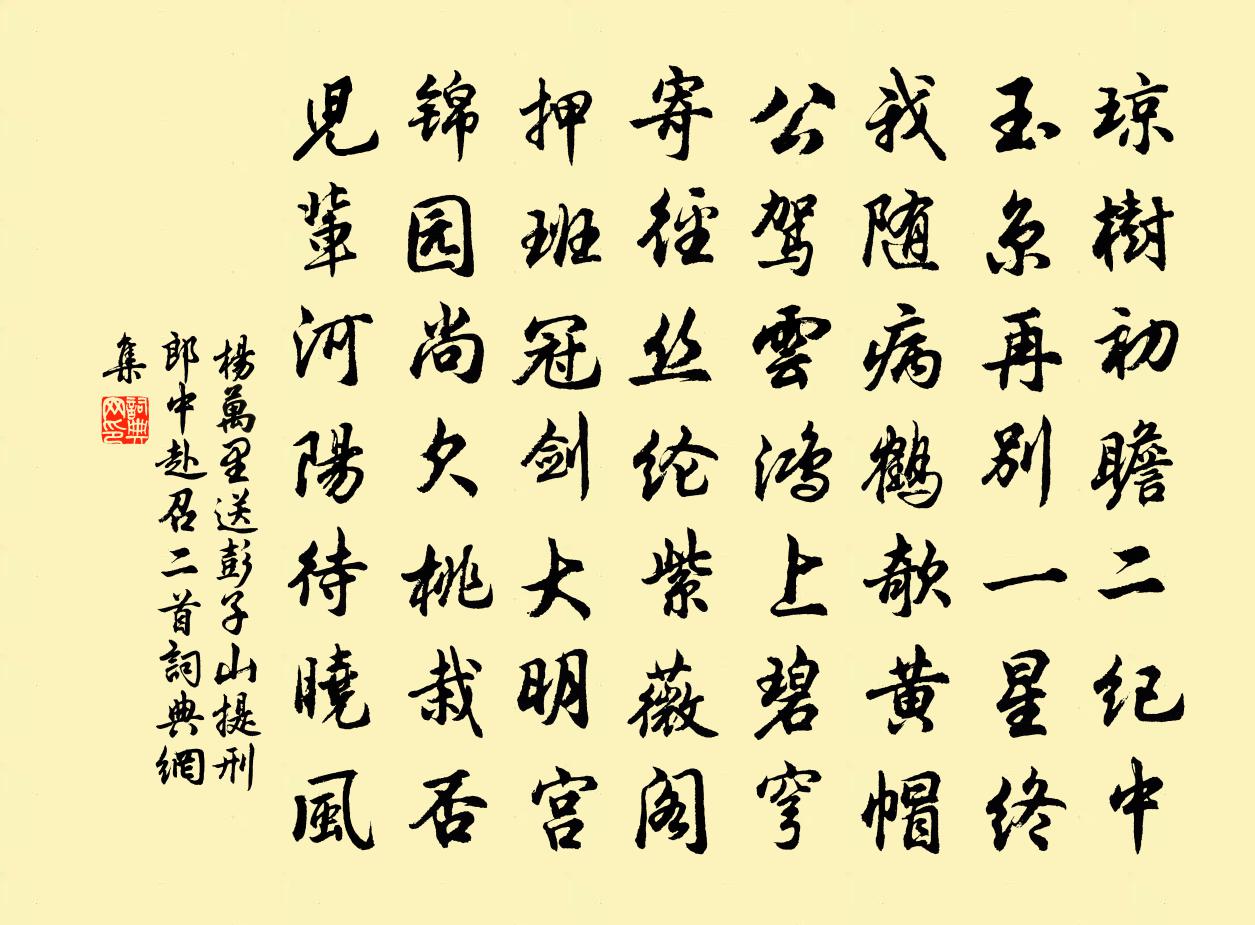 琼樹初瞻二纪中
玉京再别一星终
我随病鶴欹黄帽
公駕雲鸿上碧穹
寄徑丝纶紫薇阁
押班冠剑大明宫
锦园尚欠桃栽否
児輩河陽待曉風
楊萬里送彭子山提刑
郎中赴召二首詞典網
集
詞典
网印